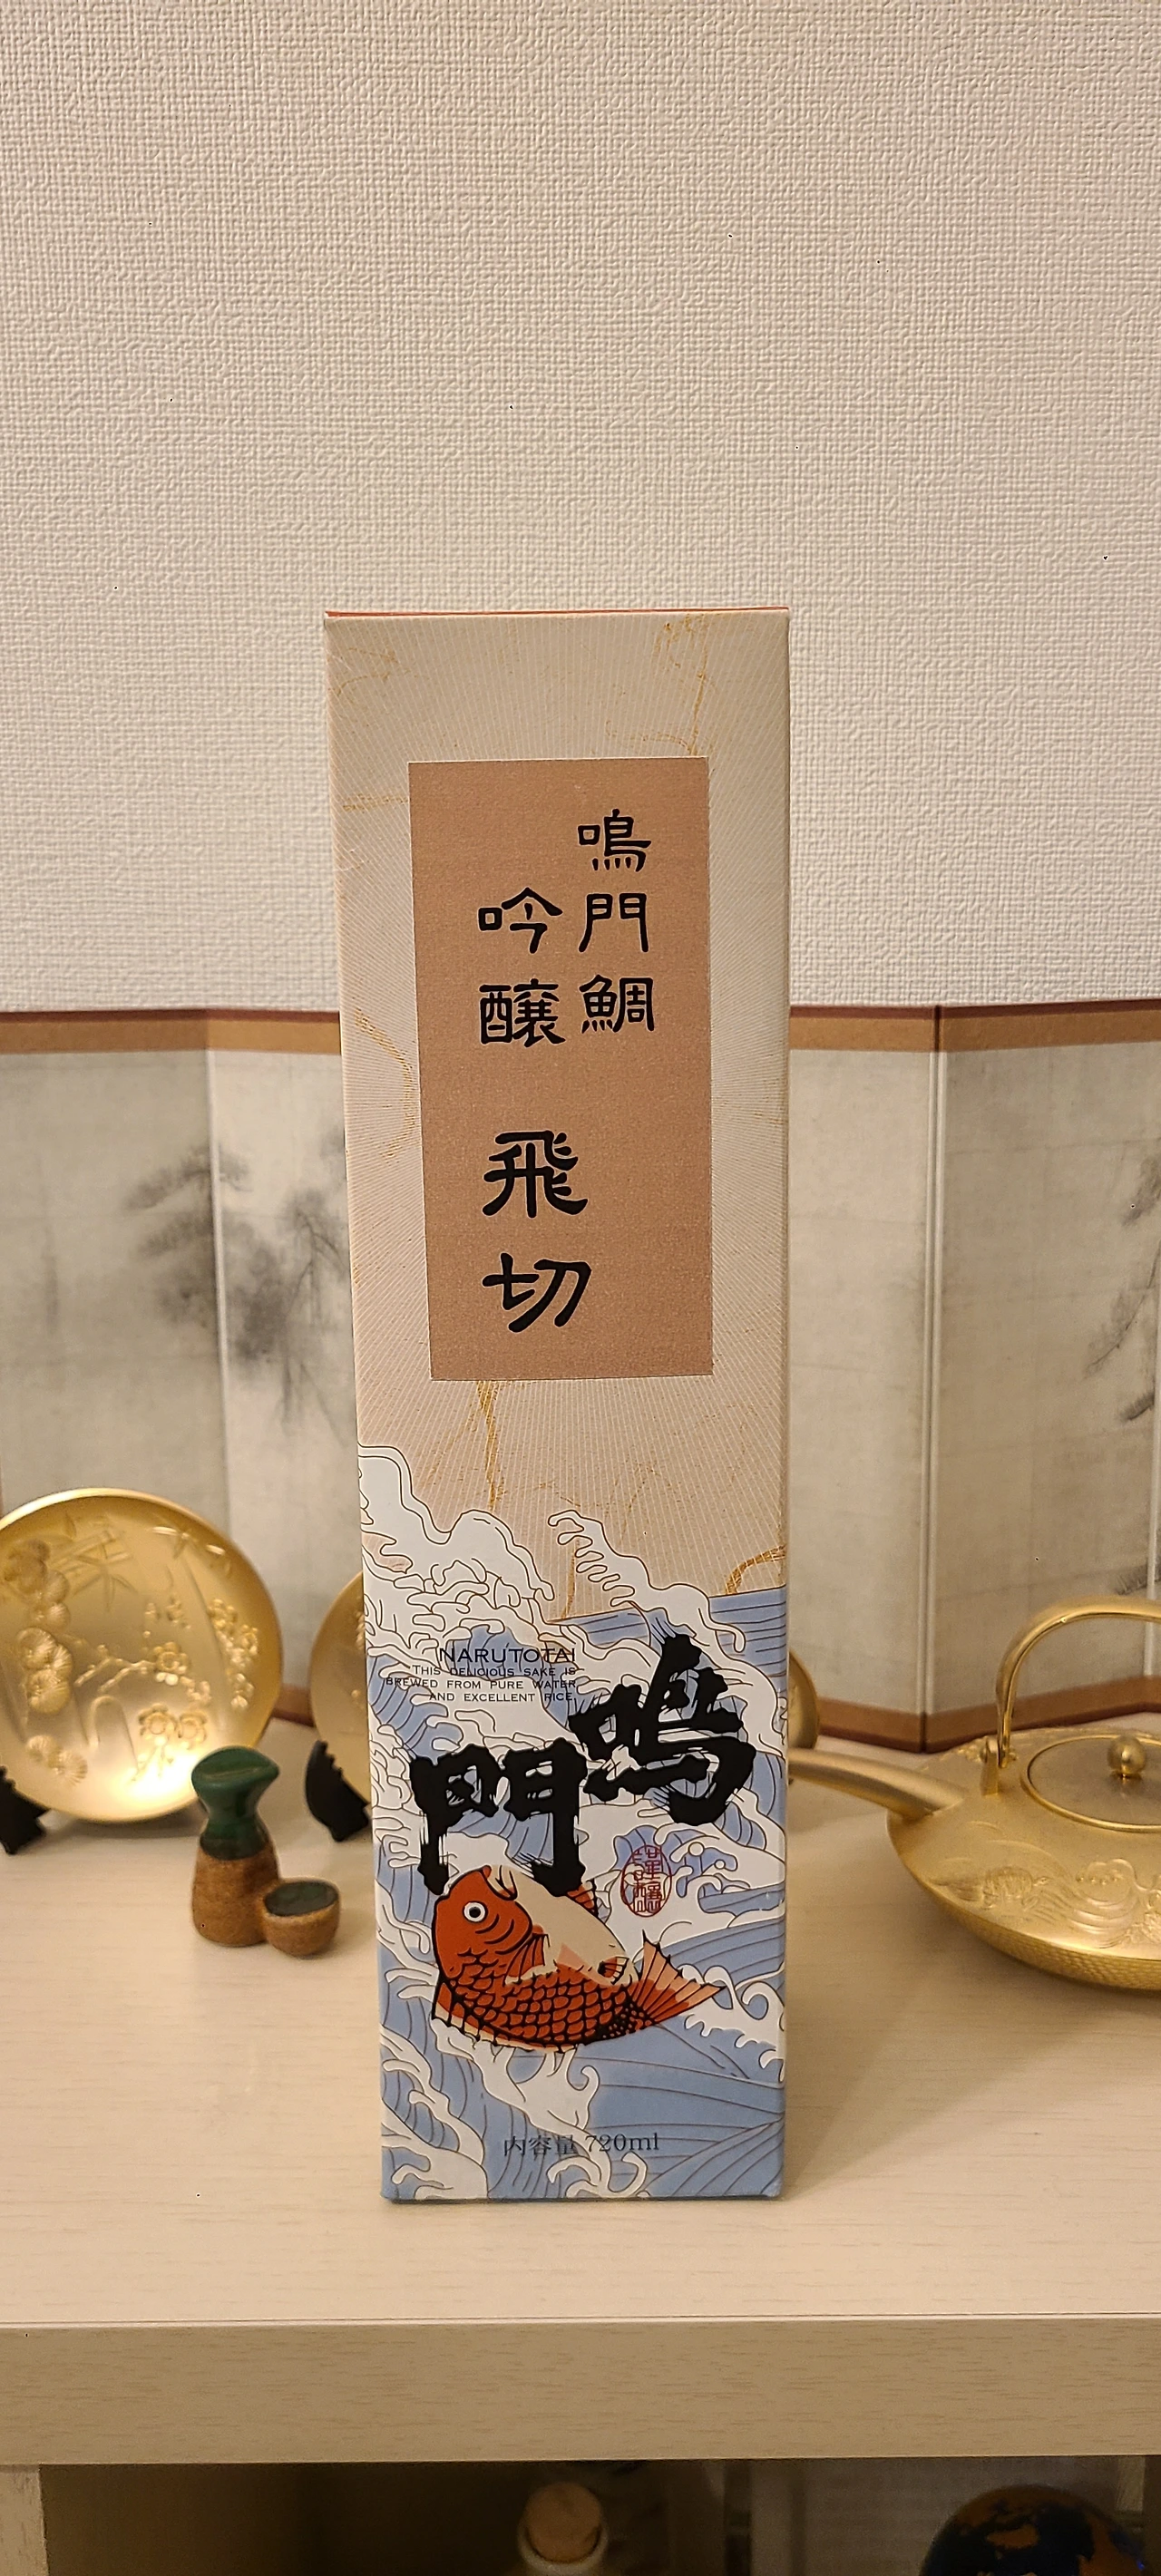 鳴門鯛
吟醸 飛切
NARUTOTAI
THIS DELICIOUS SAKE IS
BREWED FROM PURE WATER
AND EXCELLENT RICE.
鳴門
謹醸
内容量 720ml